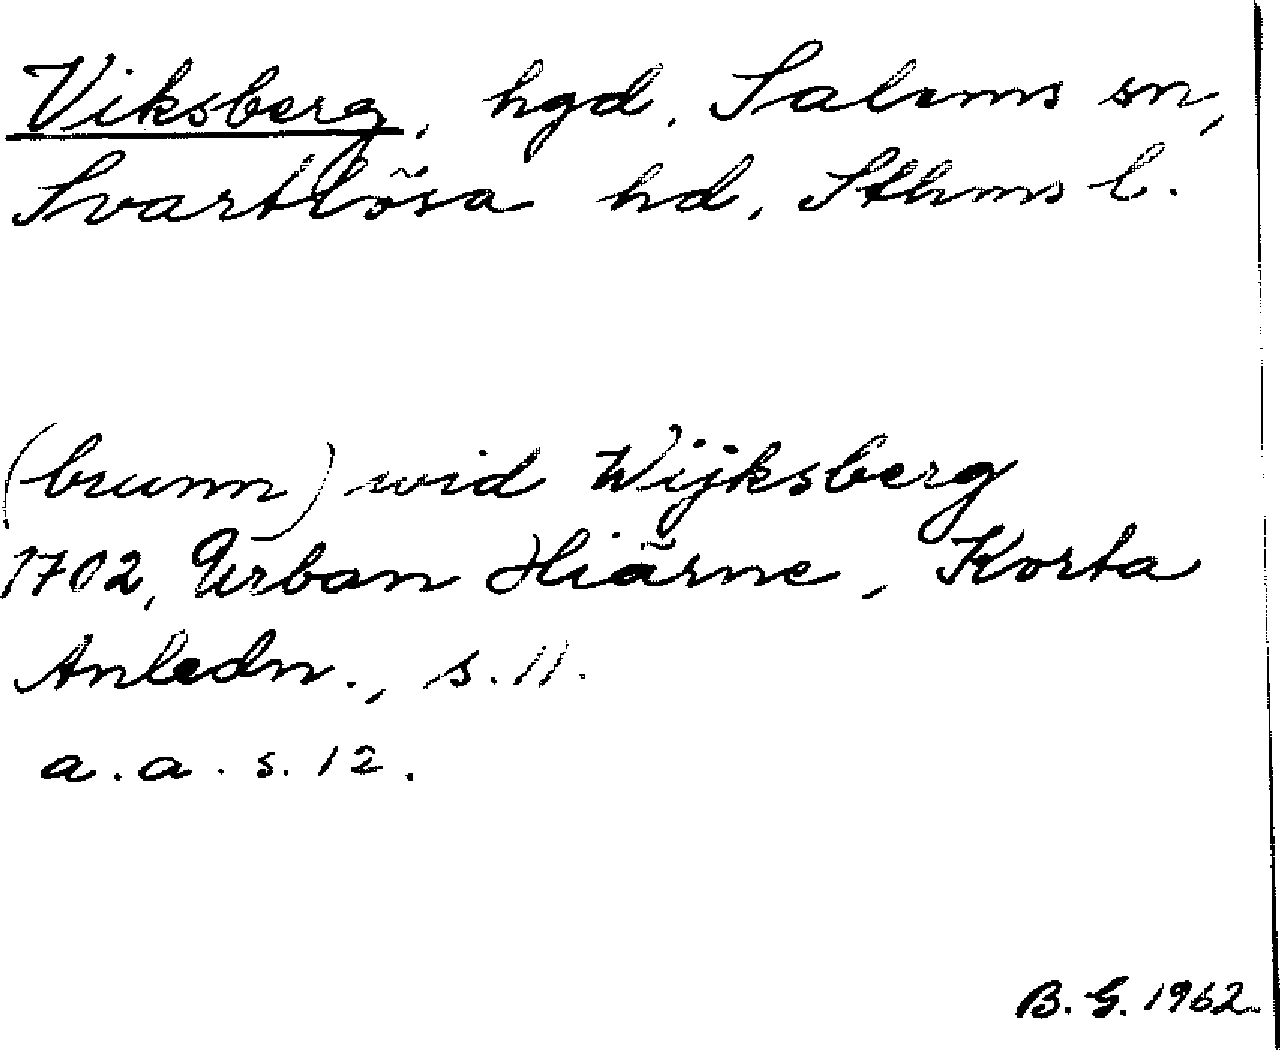 Viksberg, hgd, Salems sn,
Svartlösa hd, Sthms l.
(brunn) wid Wijksberg
1702, Urban Hiärne, Korta
Anledn., s. 11.
a. a. s. 12.
B. G. 1962.